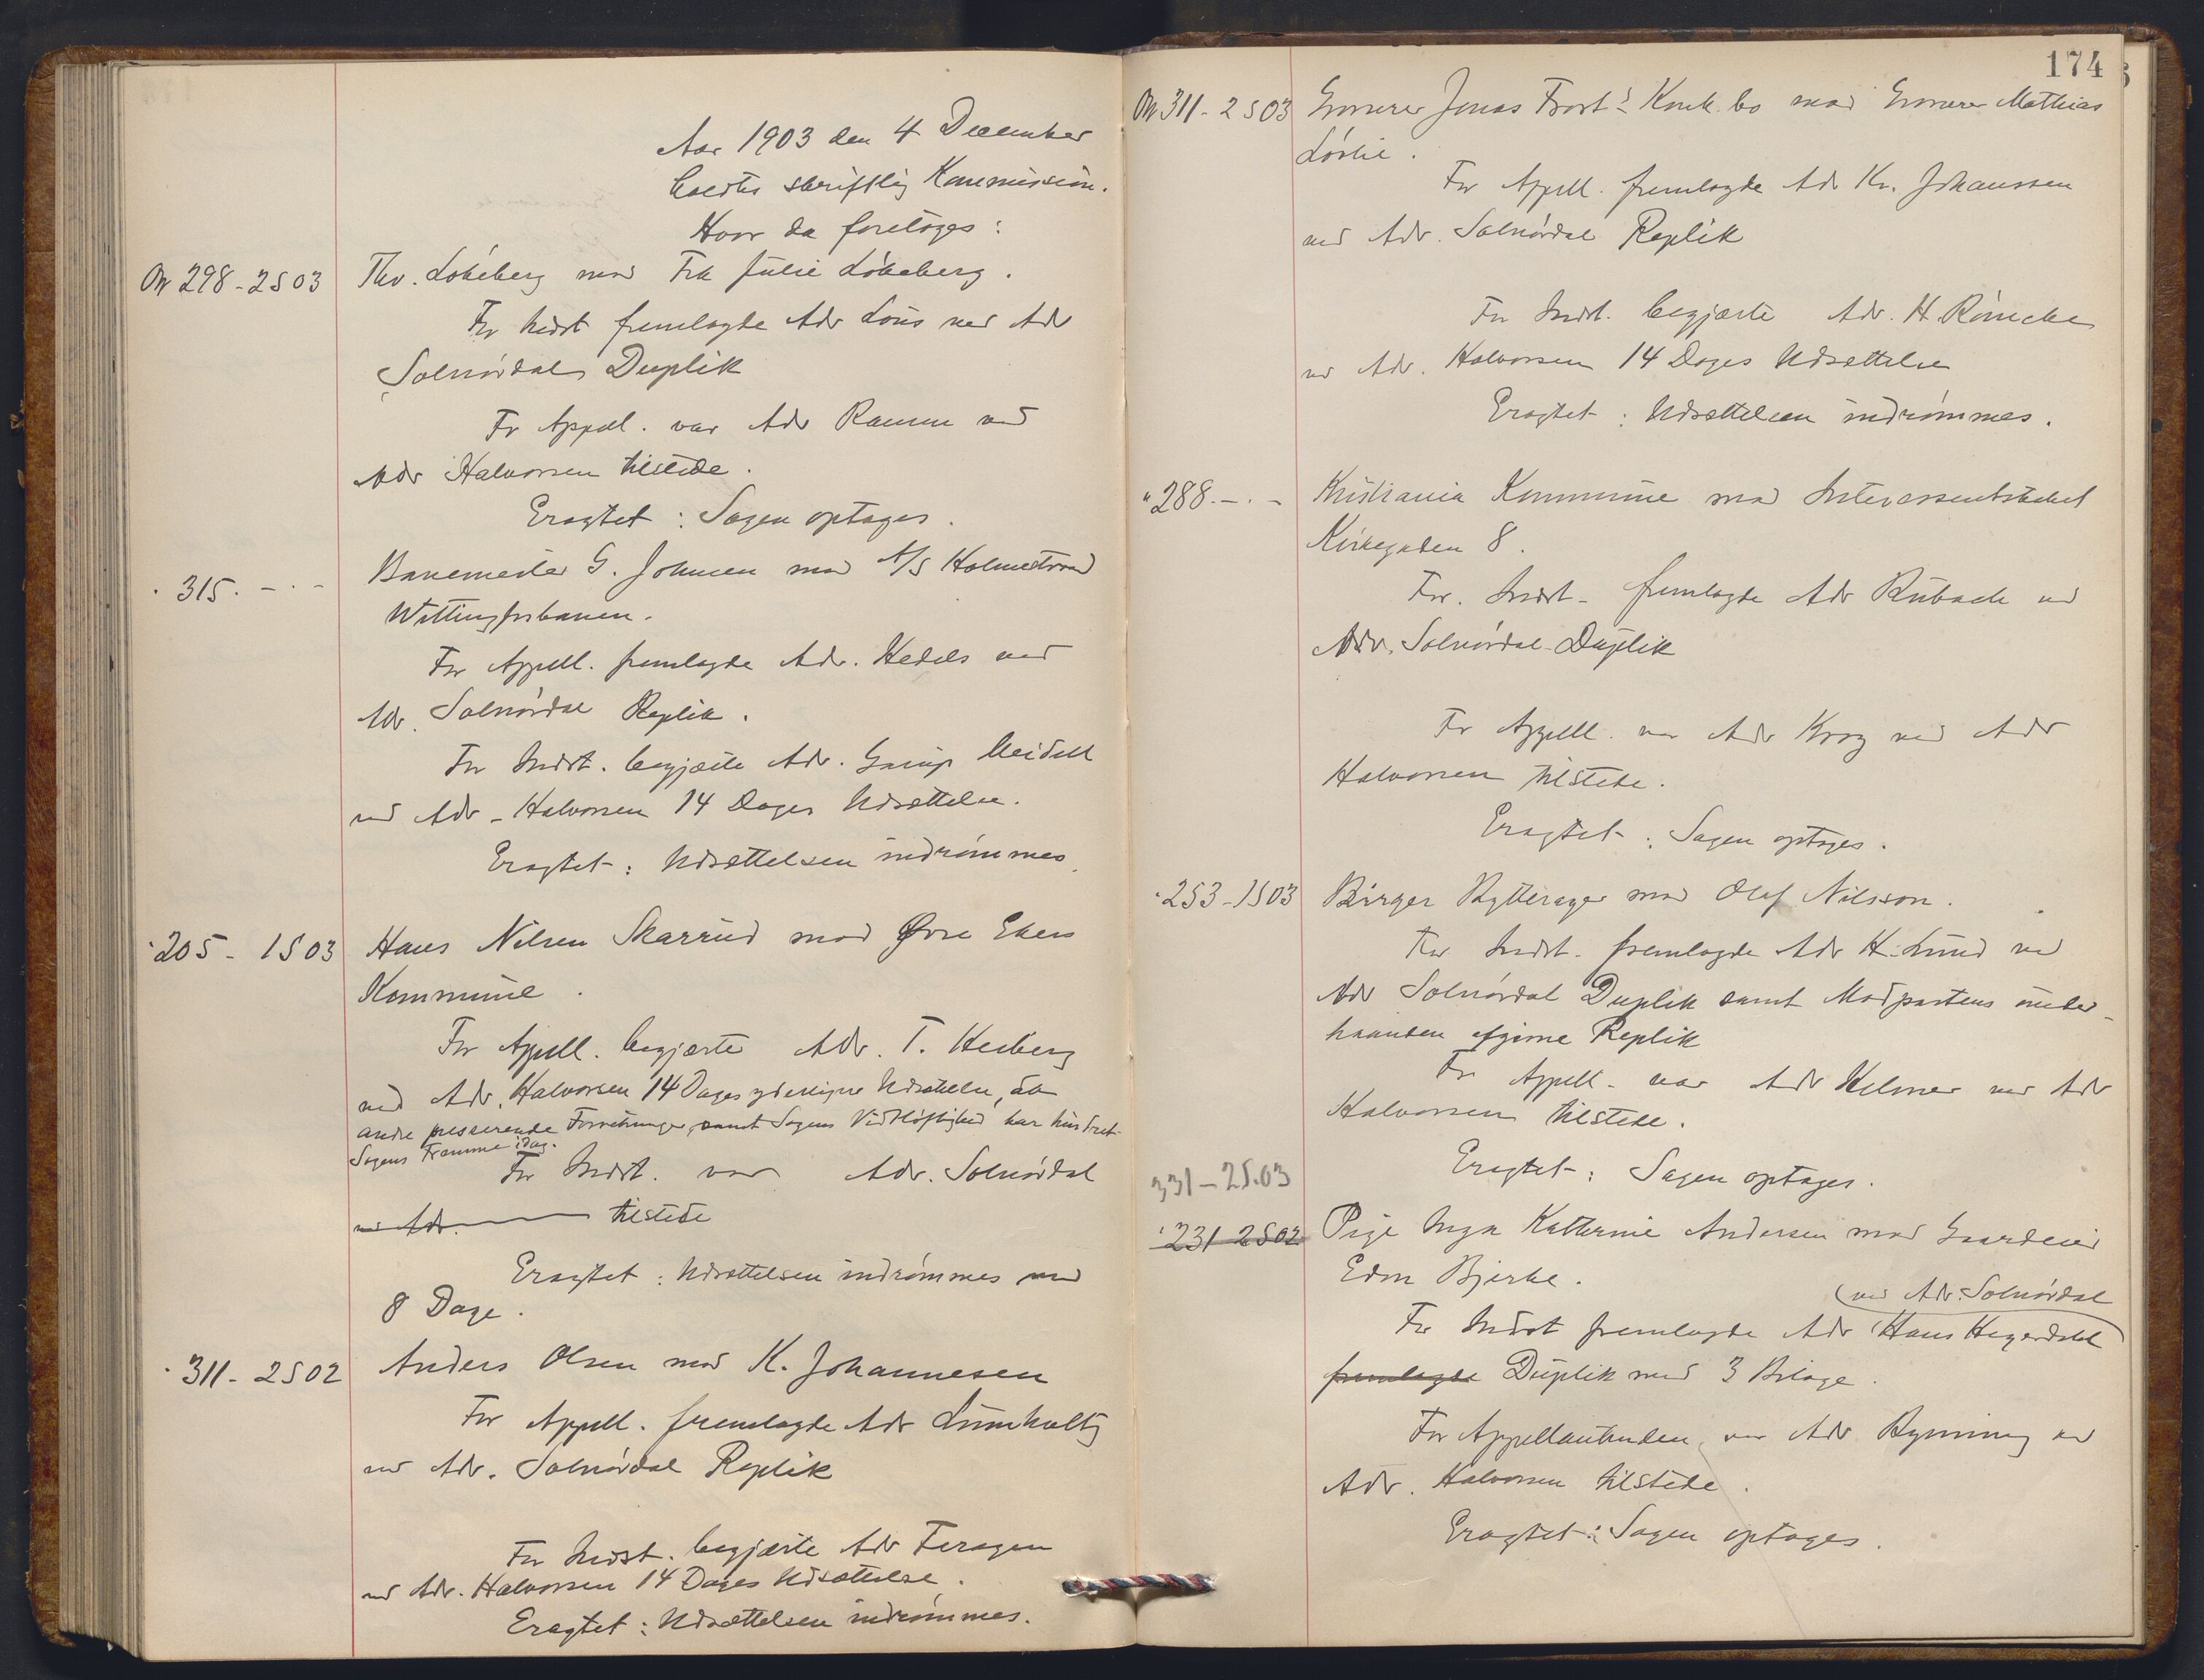 Aar 1903 den 4 December
holdtes skriftlig Kommission.
Hvor da foretoges:
Nr 298-2 S 03 Thv. Løkeberg mod Fru Julie Løkeberg.
For Indst fremlagde Adv Lous ved Adv
Solnørdal Duplik
Fr Appell. var Adv Ramm ved
Adv Halvorsen tilstede.
Eragtet: Sagen optages.
315. - . - Banemester G. Johnsen mod A/S Holmestrand
Vittingfosbanen.
For Appell. fremlagde Adv. Hedels ved
Adv. Solnørdal Replik.
For Indst. begjærte Adv. Harup Meidell
ved Adv. Halvorsen 14 Dages Udsættelse.
Eragtet: Udsættelsen indrømmes.
205 - 1 S 03 Hans Nilsen Skarrud mod Øvre Eker
Kommune.
For Appell. begjærte Adv. T. Heiberg
ved Adv. Halvorsen 14 Dages yderligere Udsættelse, da
andre presserende Forretninger samt Sagens Vidtløftighed har hindret
Sagens Fremme idag.
For Indst. var Adv. Solnørdal
ved Adv. tilstede
Eragtet: Udsættelsen indrømmes med
8 Dage.
311 - 2 S 02 Anders Olsen mod K. Johannesen
For Appell. fremlagde Adv Lumholtz
ved Adv. Solnørdal Replik
For Indst. begjærte Adv Feragen
ved Adv. Halvorsen 14 Dages Udsættelse.
Eragtet: Udsættelsen indrømmes.
174
Nr 311 - 2 S 03 Grosserer Jonas Frost's Konk.bo mod Grosserer Mathias
Lørlie.
For Appell. fremlagde Adv Kr. Johanssen
ved Adv. Solnørdal Replik
For Indst. begjærte Adv. H. Rönneke
ved Adv. Halvorsen 14 Dages Udsættelse
Eragtet: Udsættelsen indrømmes.
" 288. - . - Kristiania Kommune mod Interessentskabet
Kirkegaden 8.
For. Indst. fremlagde Adv Rubach ved
Adv. Solnørdal Duplik
For Appell. var Adv Krog ved Adv
Halvorsen tilstede.
Eragtet: Sagen optages.
253 - 1 S 03 Birger Rytterager mod Olaf Nilsson.
For Indst. fremlagde Adv H. Lund ved
Adv Solnørdal Duplik samt Modpartens under-
haanden afgivne Replik
For Appell. var Adv Helmer ved Adv
Halvorsen tilstede.
Eragtet: Sagen optages.
331 - 2 S. 03
231 2 S 02 Pige Inga Kathrine Andersen mod Gaardeier
Edm Bjerke.
ved Adv. Solnørdal
For Indst fremlagde Adv Hans Hegerdahl
fremlagde Duplik med 3 Bilage.
For Appellantinden var Adv Rynning ved
Adv. Halvorsen tilstede.
Eragtet: Sagen optages.